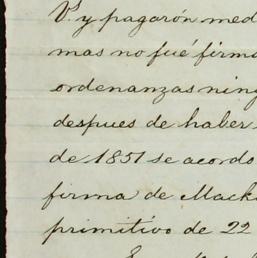 V.ª y pagarón med
mas no fué firma
ordenanzas ning
despues de haber
de 1851 se acordo
firma de Mack
primitivo de 22